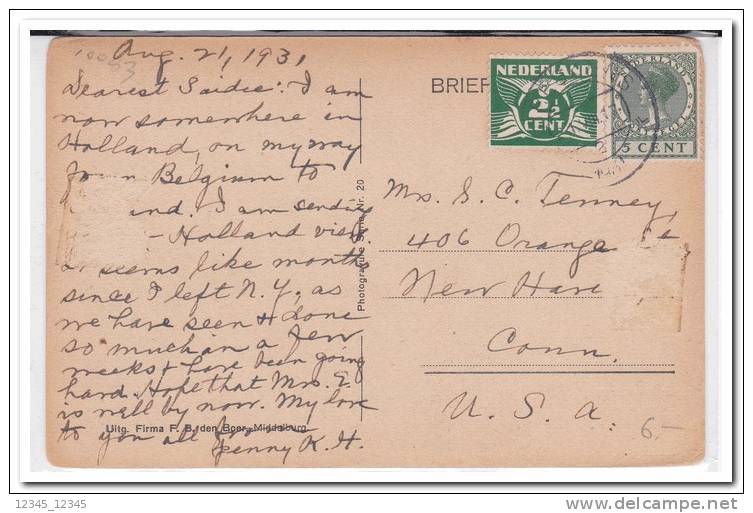 Aug. 21, 1931
Dearest Saidee: I am
now somewhere in
Holland, on my way
from Belgium to
I am sending
Holland view.
It seems like months
since I left N.Y., as
we have seen & done
so much in a few
weeks & have been going
hard. Hope that Mrs. E
is well by now. My love
to you all from
Jenny K. H.
Uitg. Firma F. B. den Boer, Middelburg
Photografie Serie Nr. 20
BRIEF
NEDERLAND
2½
CENT
NEDERLAND
5 CENT
Mrs. S. C. Tenney,
406 Orange St
New Have
Conn.
U. S. A.
6.-
12345_12345
delcampe.net